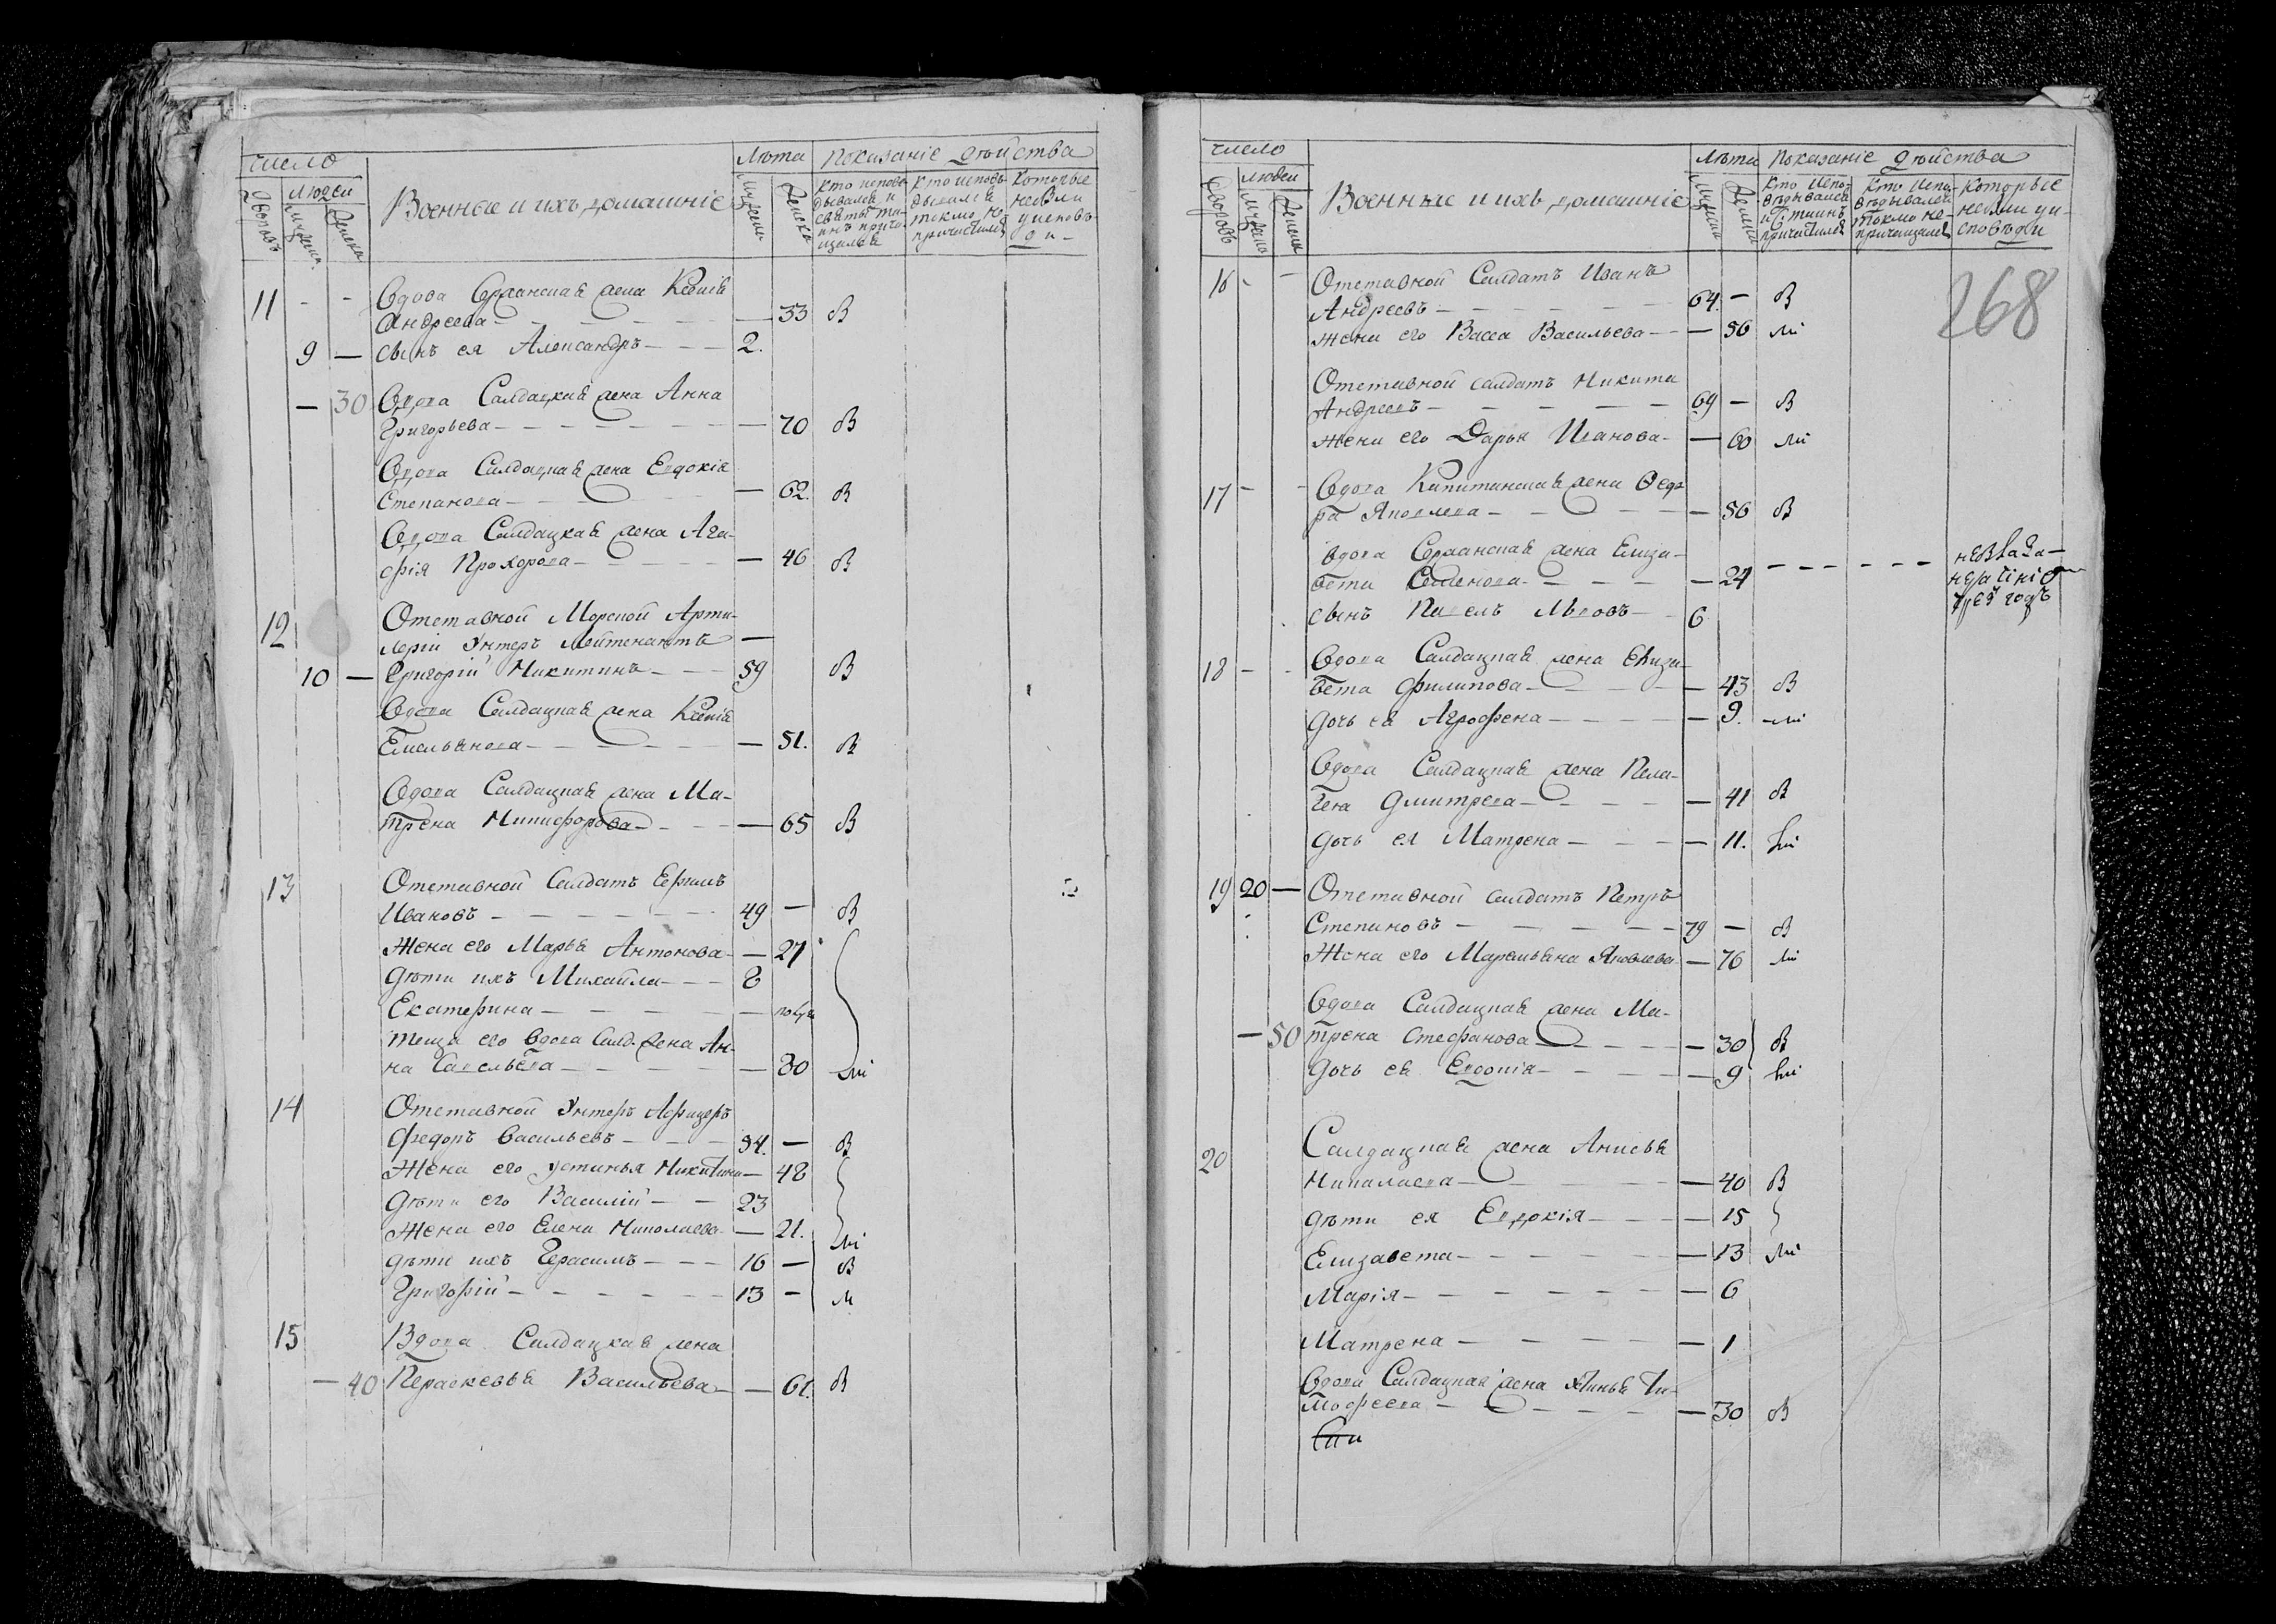 число
Лѣта Показаніе дѣйства
Дворовъ
Людей
Мужеска
Женска
Военные и ихъ домашніе
Мужески
Женски
Кто исповѣ-
дывался и
святыхъ та-
инъ приоб-
щался
Кто исповѣ-
дывался
токмо, но
не причастился
Которые
не были
у исповѣ-
ди
11 - - Вдова Сержанская жена Ксенія
Андреева — 33 В
9 — сынъ ея Александръ — 2.
— 30 Вдова Салдацкая жена Анна
Григорьева — 70 В
Вдова Салдацкая жена Евдокія
Степанова — 62. В
Вдова Салдацкая жена Ага-
фія Прохорова — 46 В
12 Отставной Морской Арти-
лерій Унтеръ Лейтенантъ —
10 — Григорій Никитинъ — 59 В
Вдова Салдацкая жена Ксенія
Емельянова — 51. В
Вдова Салдацкая жена Ма-
трена Никифорова — 65 В
13 Отставной Салдатъ
Ивановъ — 49 — В
Жена его Марья Антонова — 27
Дѣти ихъ Михайла — 8
Екатерина —
теща его вдова Салд. жена Ан-
на Савельева — 80 ли
14 Отставной Унтеръ Афицеръ
Федоръ Васильевъ — 54. — В
Жена его Устинья Никитина — 48
Дѣти его Василій — 23
Жена его Елена Николаева — 21. ли
дѣти ихъ Герасимъ — 16 — В
Григорій — 13 — м
15 Вдова Салдацкая жена
— 40 Параскевья Васильева — 61. В
число
Лѣта Показаніе дѣйства
Дворовъ
людей
Мужеска
Женска
Военные и ихъ домашніе
Мужески
Женски
Кто испо-
вѣдывался
и С таинъ
причастился
Кто испо-
вѣдывался
токмо не-
причащался
Которые
небыли уи-
сповѣди
268
16 - - Отставной Салдатъ Иванъ
Андреевъ — 64. — В
жена его Васса Васильева — 56 ли
Отставной салдатъ Никита
Андреевъ — 69 — В
жена его Дарья Иванова — 60 ли
17 - - Вдова Капитанская жена Ѳедо-
ра Яковлева — 56 В
Вдова Сержанская жена Елиза-
вета Семенова — 24
сынъ Павелъ Львовъ — 6
18 - - Вдова Салдацкая жена Елиза-
вета Филипова — 43 В
дочь ея Агрофена — 9. ли
Вдова Салдацкая жена Пела-
гея Дмитрева — 41 В
дочь ея Матрена — 11. ли
19 20 — Отставной салдатъ Петръ
Степановъ — 79 — В
Жена его Маремьяна Яковлева — 76 ли
Вдова Салдацкая жена Ма-
— 50 трена Стефанова — 30 В
Дочь ея Евдокія — 9 ли
20 Салдацкая жена Анисья
Николаева — 40 В
дѣти ея Евдокія — 15
Елизавета — 13 ли
Марія — 6
Матрена — 1
Вдова Салдацкая жена Устинья Ти-
мофеева — 30 В